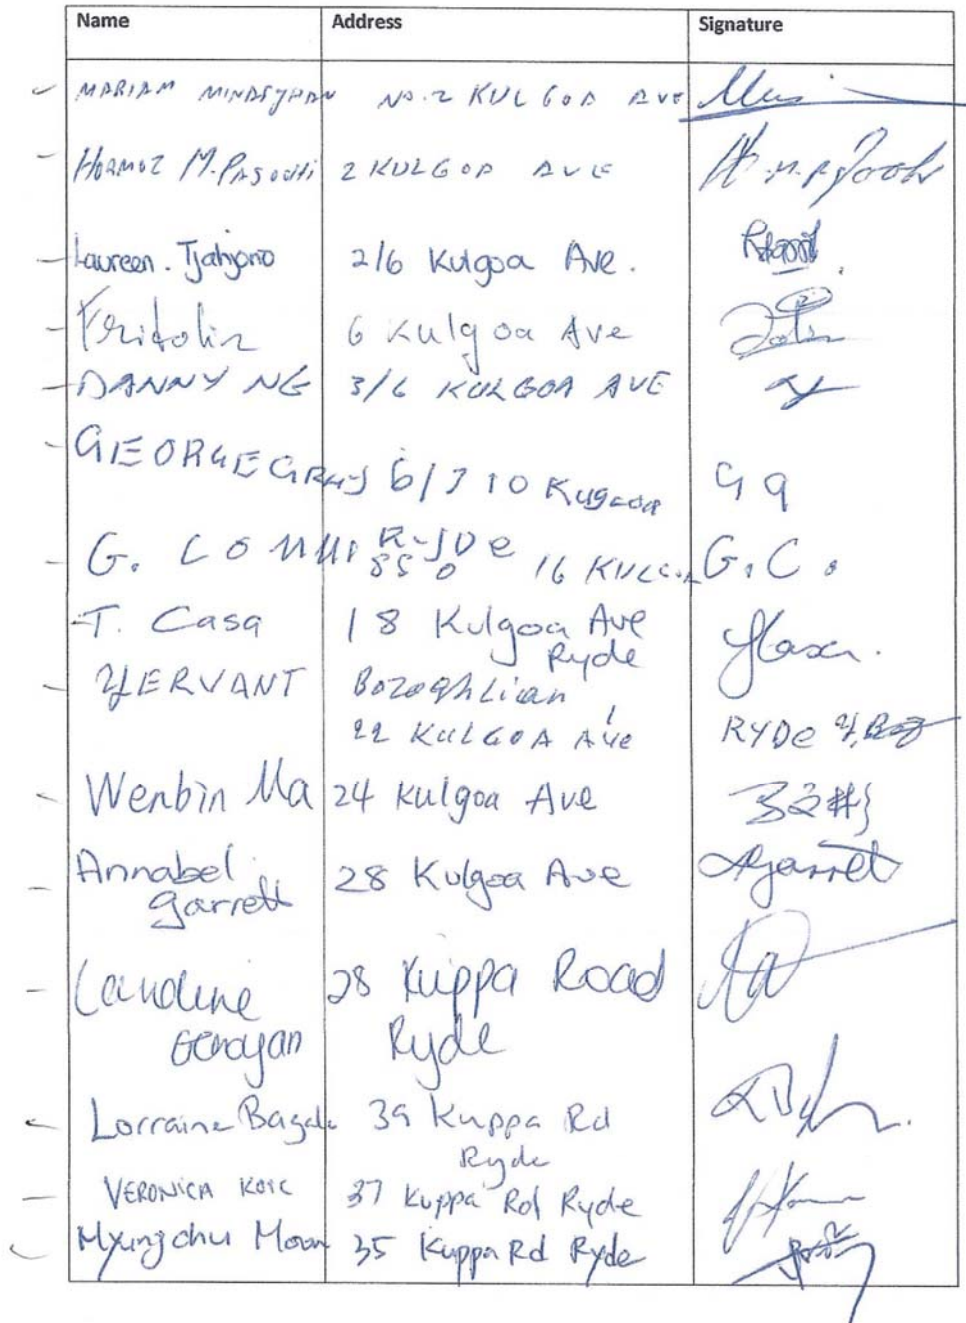 Name Address Signature
MARIAM MINASYHAN NO.2 KULGOA AVE
HORMOZ M. 2 KULGOA AVE
Laureen. Tjahjono 2/6 Kulgoa Ave.
Fridolin 6 Kulgoa Ave
DANNY NG 3/6 KULGOA AVE
GEORGE GRAY 6/7 10 Kugoaa G G
G. RYDE 16 KULGOA G.C.
T. Casa 18 Kulgoa Ave
Ryde
YERVANT Bozoghlian
22 KULGOA AVE RYDE
Wenbin Ma 24 Kulgoa Ave
Annabel 28 Kulgoa Ave AGarrett
Garrett
28 Kuppa Road
Ryde
Lorraine 39 Kuppa Rd
Ryde
VERONICA 37 Kuppa Rd Ryde
Myungchu Moon 35 Kuppa Rd Ryde